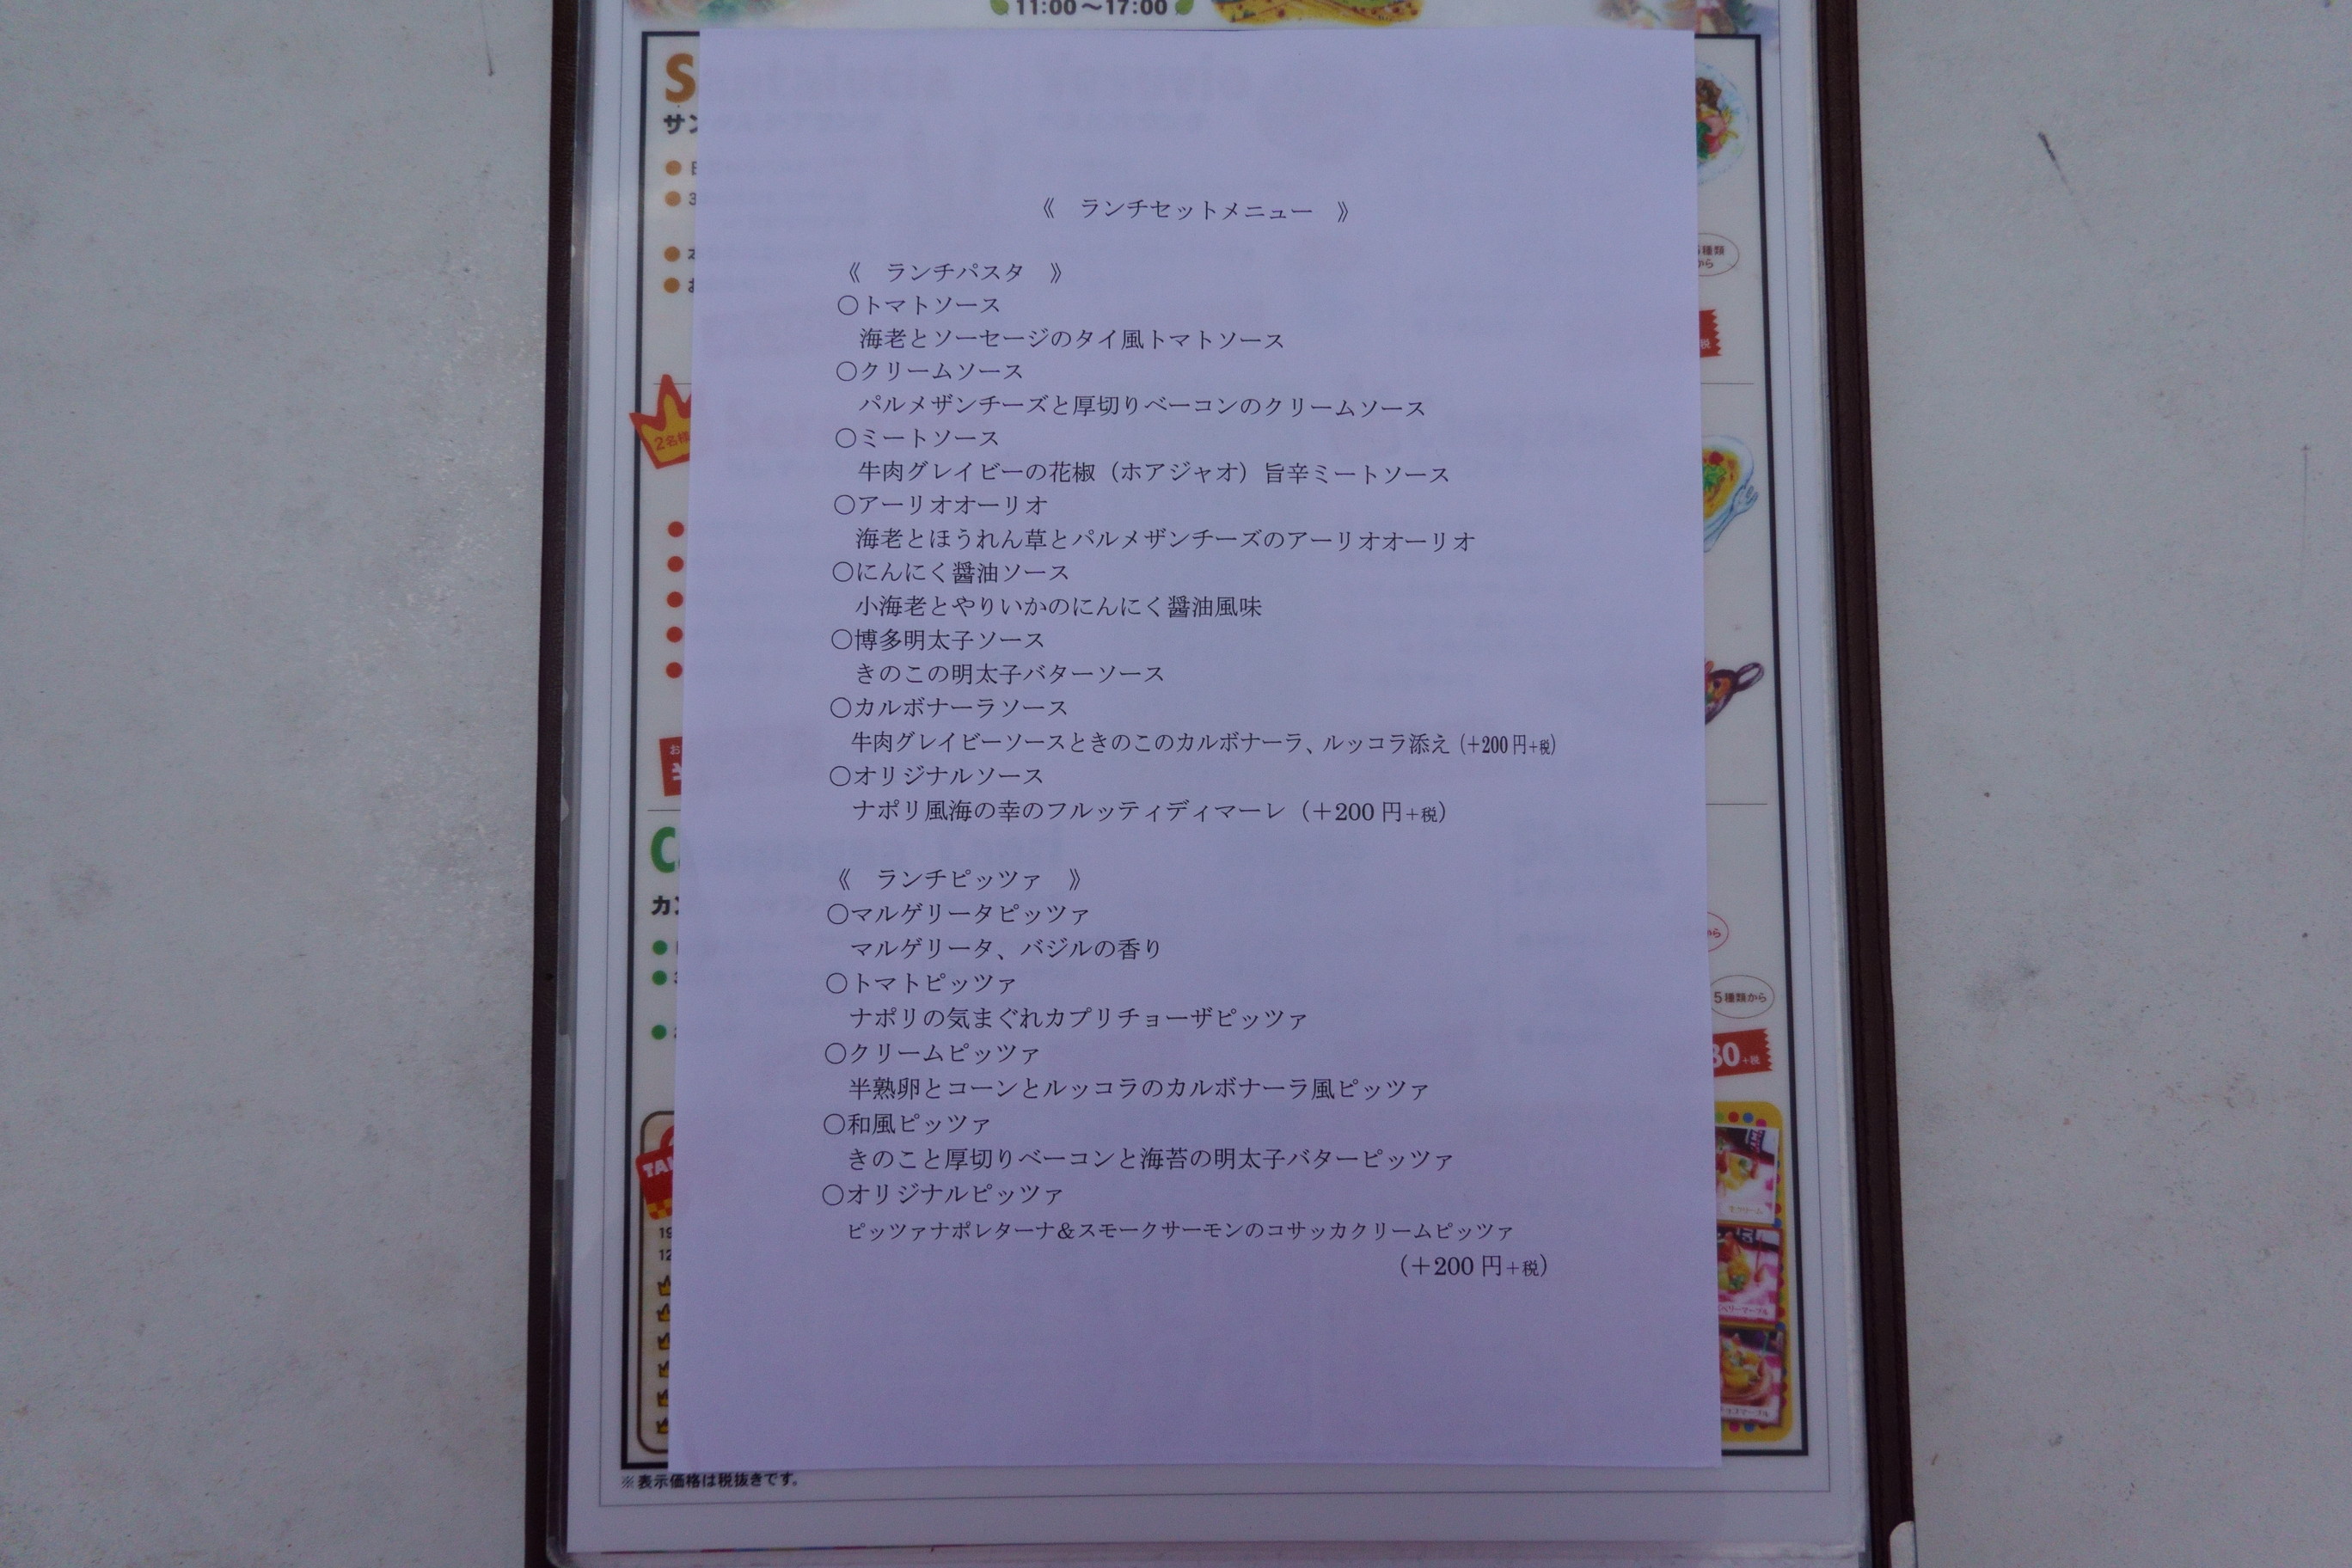 11:00～17:00
《　ランチセットメニュー　》
《　ランチパスタ　》
○トマトソース
海老とソーセージのタイ風トマトソース
○クリームソース
パルメザンチーズと厚切りベーコンのクリームソース
○ミートソース
牛肉グレイビーの花椒（ホアジャオ）旨辛ミートソース
○アーリオオーリオ
海老とほうれん草とパルメザンチーズのアーリオオーリオ
○にんにく醤油ソース
小海老とやりいかのにんにく醤油風味
○博多明太子ソース
きのこの明太子バターソース
○カルボナーラソース
牛肉グレイビーソースときのこのカルボナーラ、ルッコラ添え（＋200円+税）
○オリジナルソース
ナポリ風海の幸のフルッティディマーレ（＋200円+税）
《　ランチピッツァ　》
○マルゲリータピッツァ
マルゲリータ、バジルの香り
○トマトピッツァ
ナポリの気まぐれカプリチョーザピッツァ
○クリームピッツァ
半熟卵とコーンとルッコラのカルボナーラ風ピッツァ
○和風ピッツァ
きのこと厚切りベーコンと海苔の明太子バターピッツァ
○オリジナルピッツァ
ピッツァナポレターナ&スモークサーモンのコサッカクリームピッツァ
（＋200円+税）
種類
から
税
2名様
から
5種類から
80+税
※表示価格は税抜きです。